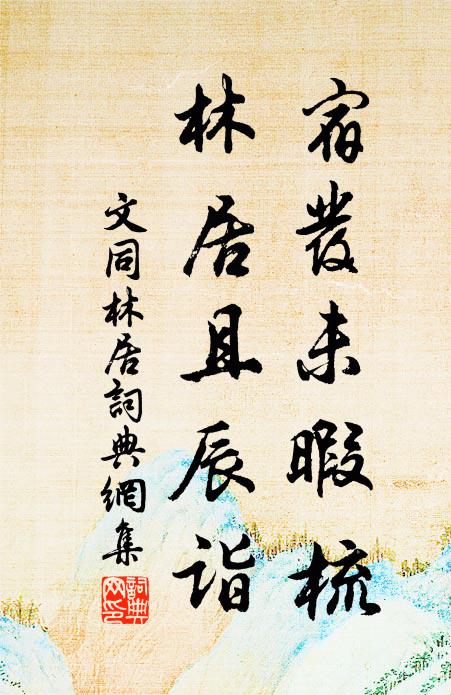 宿發未暇梳
林居且辰詣
文同林居詞典網集
詞典
网印